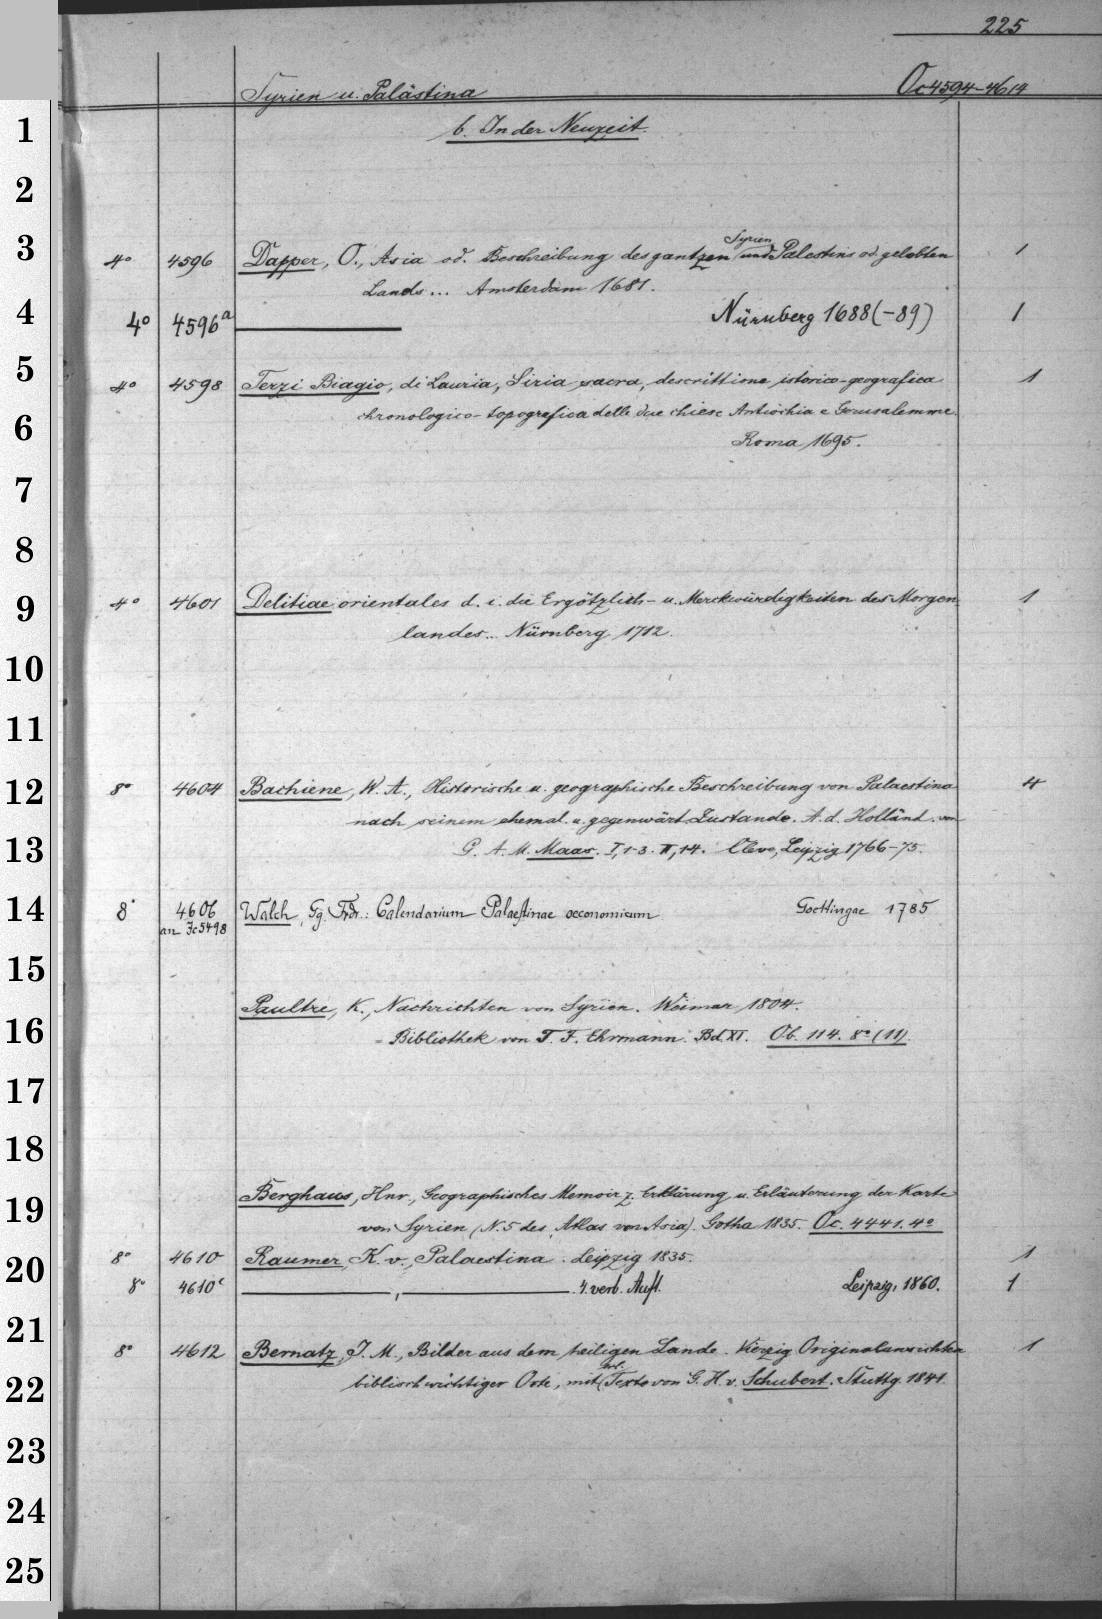 225
Syrien u. Palästina Oc 4594-4614
b. In der Neuzeit.
1
2
3
4
5
6
7
8
9
10
11
12
13
14
15
16
17
18
19
20
21
22
23
24
25
Syrien
4° 4596 Dapper, O., Asia od. Beschreibung des gantzen und Palestins od. gelobten 1
Lands... Amsterdam 1681.
4° 4596a Nürnberg 1688 (-89) 1
4° 4598 Terzi Biagio, di Lauria, Siria sacra, descrittione istorico-geografica 1
chronologico-topografica delle due chiese Antiochia e Gerusalemme.
Roma 1695.
4° 4601 Delitiae orientales d. i. die Ergötzlich- u. Merckwürdigkeiten des Morgen- 1
landes... Nürnberg 1712.
8° 4604 Bachiene, W. A., Historische u. geographische Beschreibung von Palaestina 4
nach seinem ehemal. u. gegenwärt. Zustande. A. d. Holländ. von
G. A. M. Maas. I,1-3. II,1-4. Cleve, Leipzig 1766-75.
8° 4606 Walch, Gg. Frdr.: Calendarium Palaestinae oeconomicum Goettingae 1785
an Jc 5498
Paultre, K., Nachrichten von Syrien. Weimar 1804.
= Bibliothek von T. F. Ehrmann. Bd XI. Ob. 114. 8° (11).
Berghaus, Hnr., Geographisches Memoir z. Erklärung u. Erläuterung der Karte
von Syrien (N. 5 des Atlas von Asia). Gotha 1835. Oc. 4441. 4°
8° 4610 Raumer, K. v., Palaestina. Leipzig 1835. 1
8° 4610c , 4. verb. Aufl. Leipzig, 1860. 1
8° 4612 Bernatz, J. M., Bilder aus dem heiligen Lande. Vierzig Originalansichten 1
biblisch wichtiger Orte, mit Texte von G. H. v. Schubert. Stuttg. 1841.